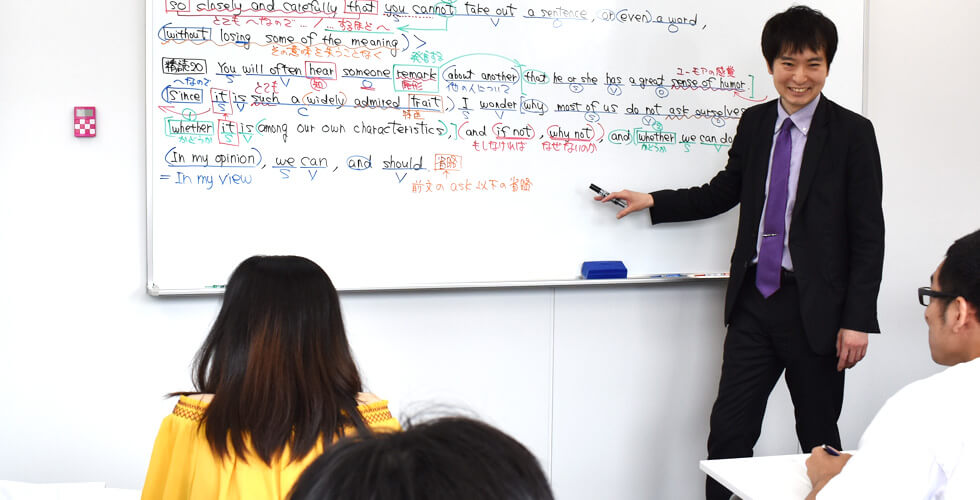 so closely and carefully that you cannot take out a sentence, or (even) a word,
とても へなので… / …するほど へ S V O
(without losing some of the meaning) >
その意味を失うことなく 発言する
精読20 You will often hear someone remark (about another) that he or she has a great sense of humor.
S V 知 O 原形 他の人について S V O ユーモアの感覚
へなので とても
(Since it is such a (widely) admired trait,) I wonder why most of us do not ask ourselves
S V C 特質 S V S V O
[whether it is (among our own characteristics),] (and if not, why not), and whether we can do
かどうか S V もしなければ なぜないのか かどうか S V
(In my opinion), we can, and should. 省略
= In my view S V V 前文の ask 以下の省略